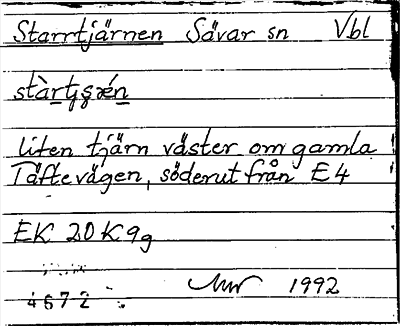 Starrtjärnen Sävar sn Vbl
stàrtjsɤén
liten tjärn väster om gamla
Täftevägen, söderut från E4
EK 20K9g
1992
4672